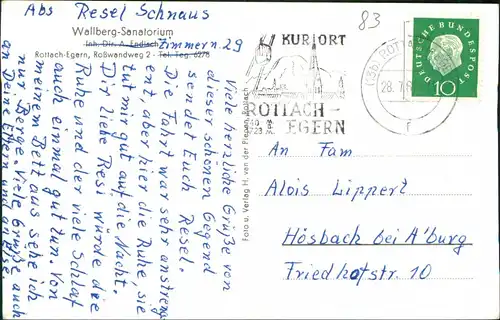 Abs Resel Schnaus
Wallberg-Sanatorium
Inh. Dir. A. Endisch
Zimmer n. 29
Rottach-Egern, Roßwandweg 2 - Tel. Teg. 6278
83
KURORT
ROTTACH-
EGERN
28. 7. 6
DEUTSCHE BUNDESPOST
10
Viele herzliche Grüße von
dieser schönen Gegend
sendet Euch Resel.
Die Fahrt war sehr anstreng
ent aber hier die Ruhe, sie
tut mir gut auf die Nacht.
Dir liebe Resi würde die
Ruhe und der viele Schlaf
auch einmal gut tun. Von
meinem Bett aus sehe ich
nur Berge. Viele Grüße auch
an Deine Eltern und
Foto u. Verlag H. von der Piepen, Rottach
An Fam
Alois Lippert
Hösbach bei A'burg
Friedhofstr. 10